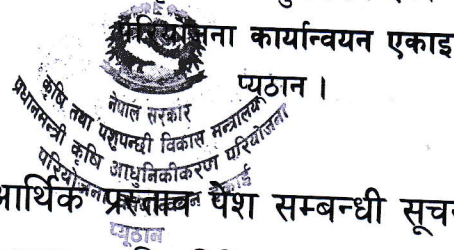 परियोजना कार्यान्वयन एकाइ
प्यूठान ।
नेपाल सरकार
कृषि तथा पशुपन्छी विकास मन्त्रालय
प्रधानमन्त्री कृषि आधुनिकीकरण परियोजना
परियोजना
प्यूठान
आर्थिक प्रस्ताव पेश सम्बन्धी सूच